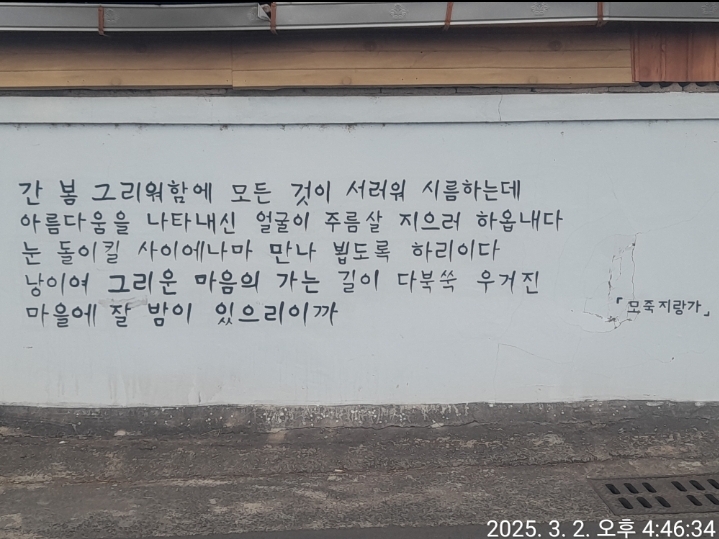 간 봄 그리워함에 모든 것이 서러워 시름하는데
아름다움을 나타내신 얼굴이 주름살 지으려 하옵내다
눈 돌이킬 사이에나마 만나 뵙도록 하리이다
낭이여 그리운 마음의 가는 길이 다북쑥 우거진
마을에 잘 밤이 있으리이까
「모죽지랑가」
2025. 3. 2. 오후 4:46:34